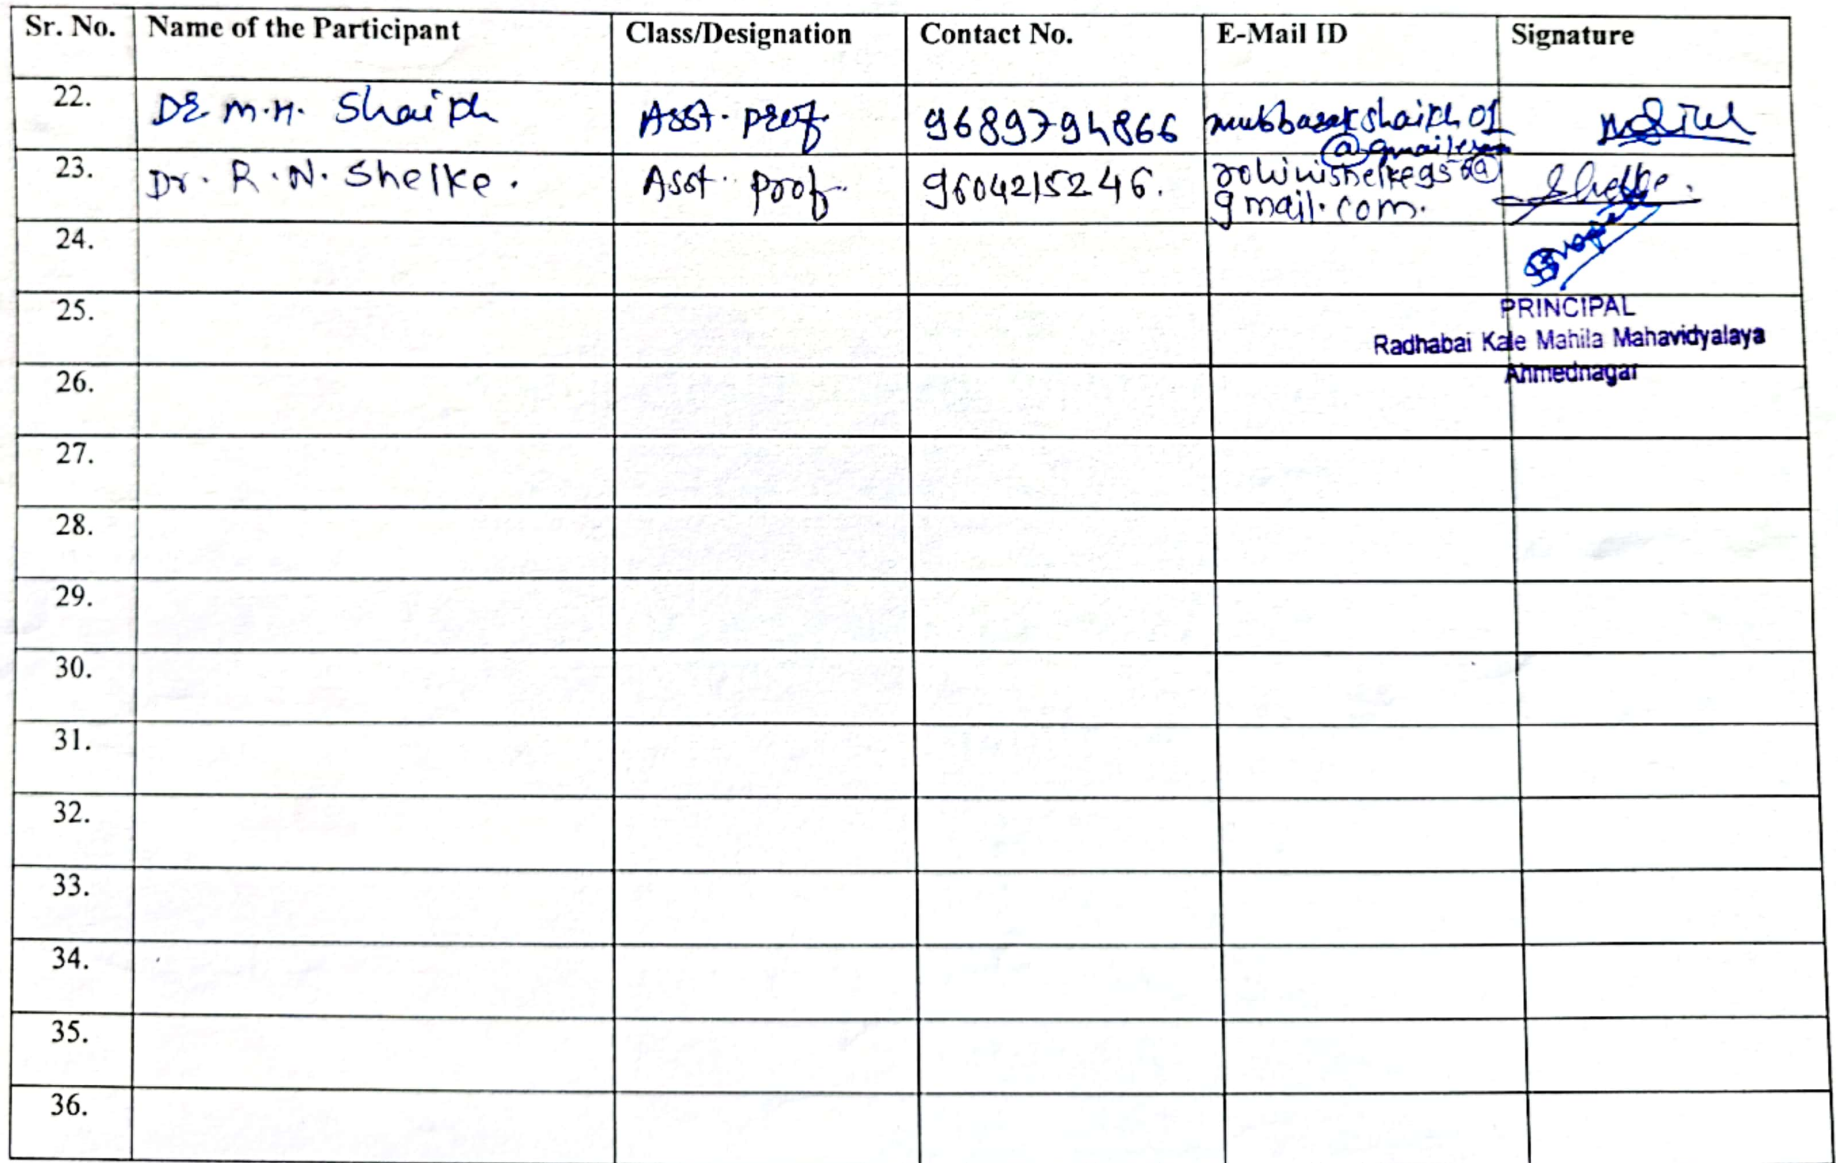 Sr. No. Name of the Participant Class/Designation Contact No. E-Mail ID Signature
22. Dr M.H. Shaikh Asst. Prof. 9689794866 mubbasarshaikh01
@gmail.com
23. Dr. R.N. Shelke. Asst. Prof. 9604215246. Shelke.
gmail.com.
24.
25. PRINCIPAL
Radhabai Kale Mahila Mahavidyalaya
26. Ahmednagar
27.
28.
29.
30.
31.
32.
33.
34.
35.
36.